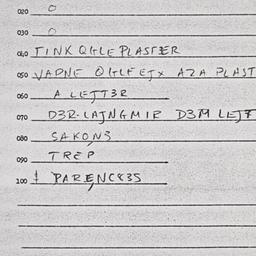 020 0
030 0
040 TINK QGLE PLASTER
050 VADNE QGLF EJX AZA PLAST
060 A LEJT3R
070 D3R·LAJNGMIR D3M LEJT
080 SAKONS
090 TREP
100 PARENC83S